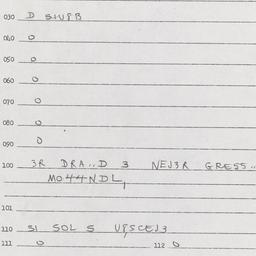 030 D S1U8B
040 0
050 0
060 0
070 0
080 0
090 0
100 3R DRA..D 3 NEJ3R GRESS..
MO44NDL,
101
110 S1 SOL S U8SCEJ3
111 0 112 0